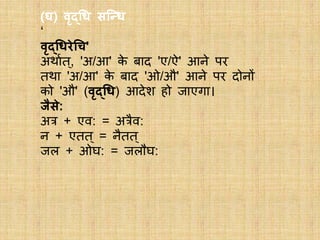 (ध) वृद्धि सन्धि
'
वृद्धिरेचि'
अर्थात्, 'अ/आ' के बाद 'ए/ऐ' आने पर
तथा 'अ/आ' के बाद 'ओ/औ' आने पर दोनों
को 'औ' (वृद्धि) आदेश हो जाएगा।
जैसे:
अत्र + एव: = अत्रैव:
न + एतत् = नैतत्
जल + ओघ: = जलौघ: